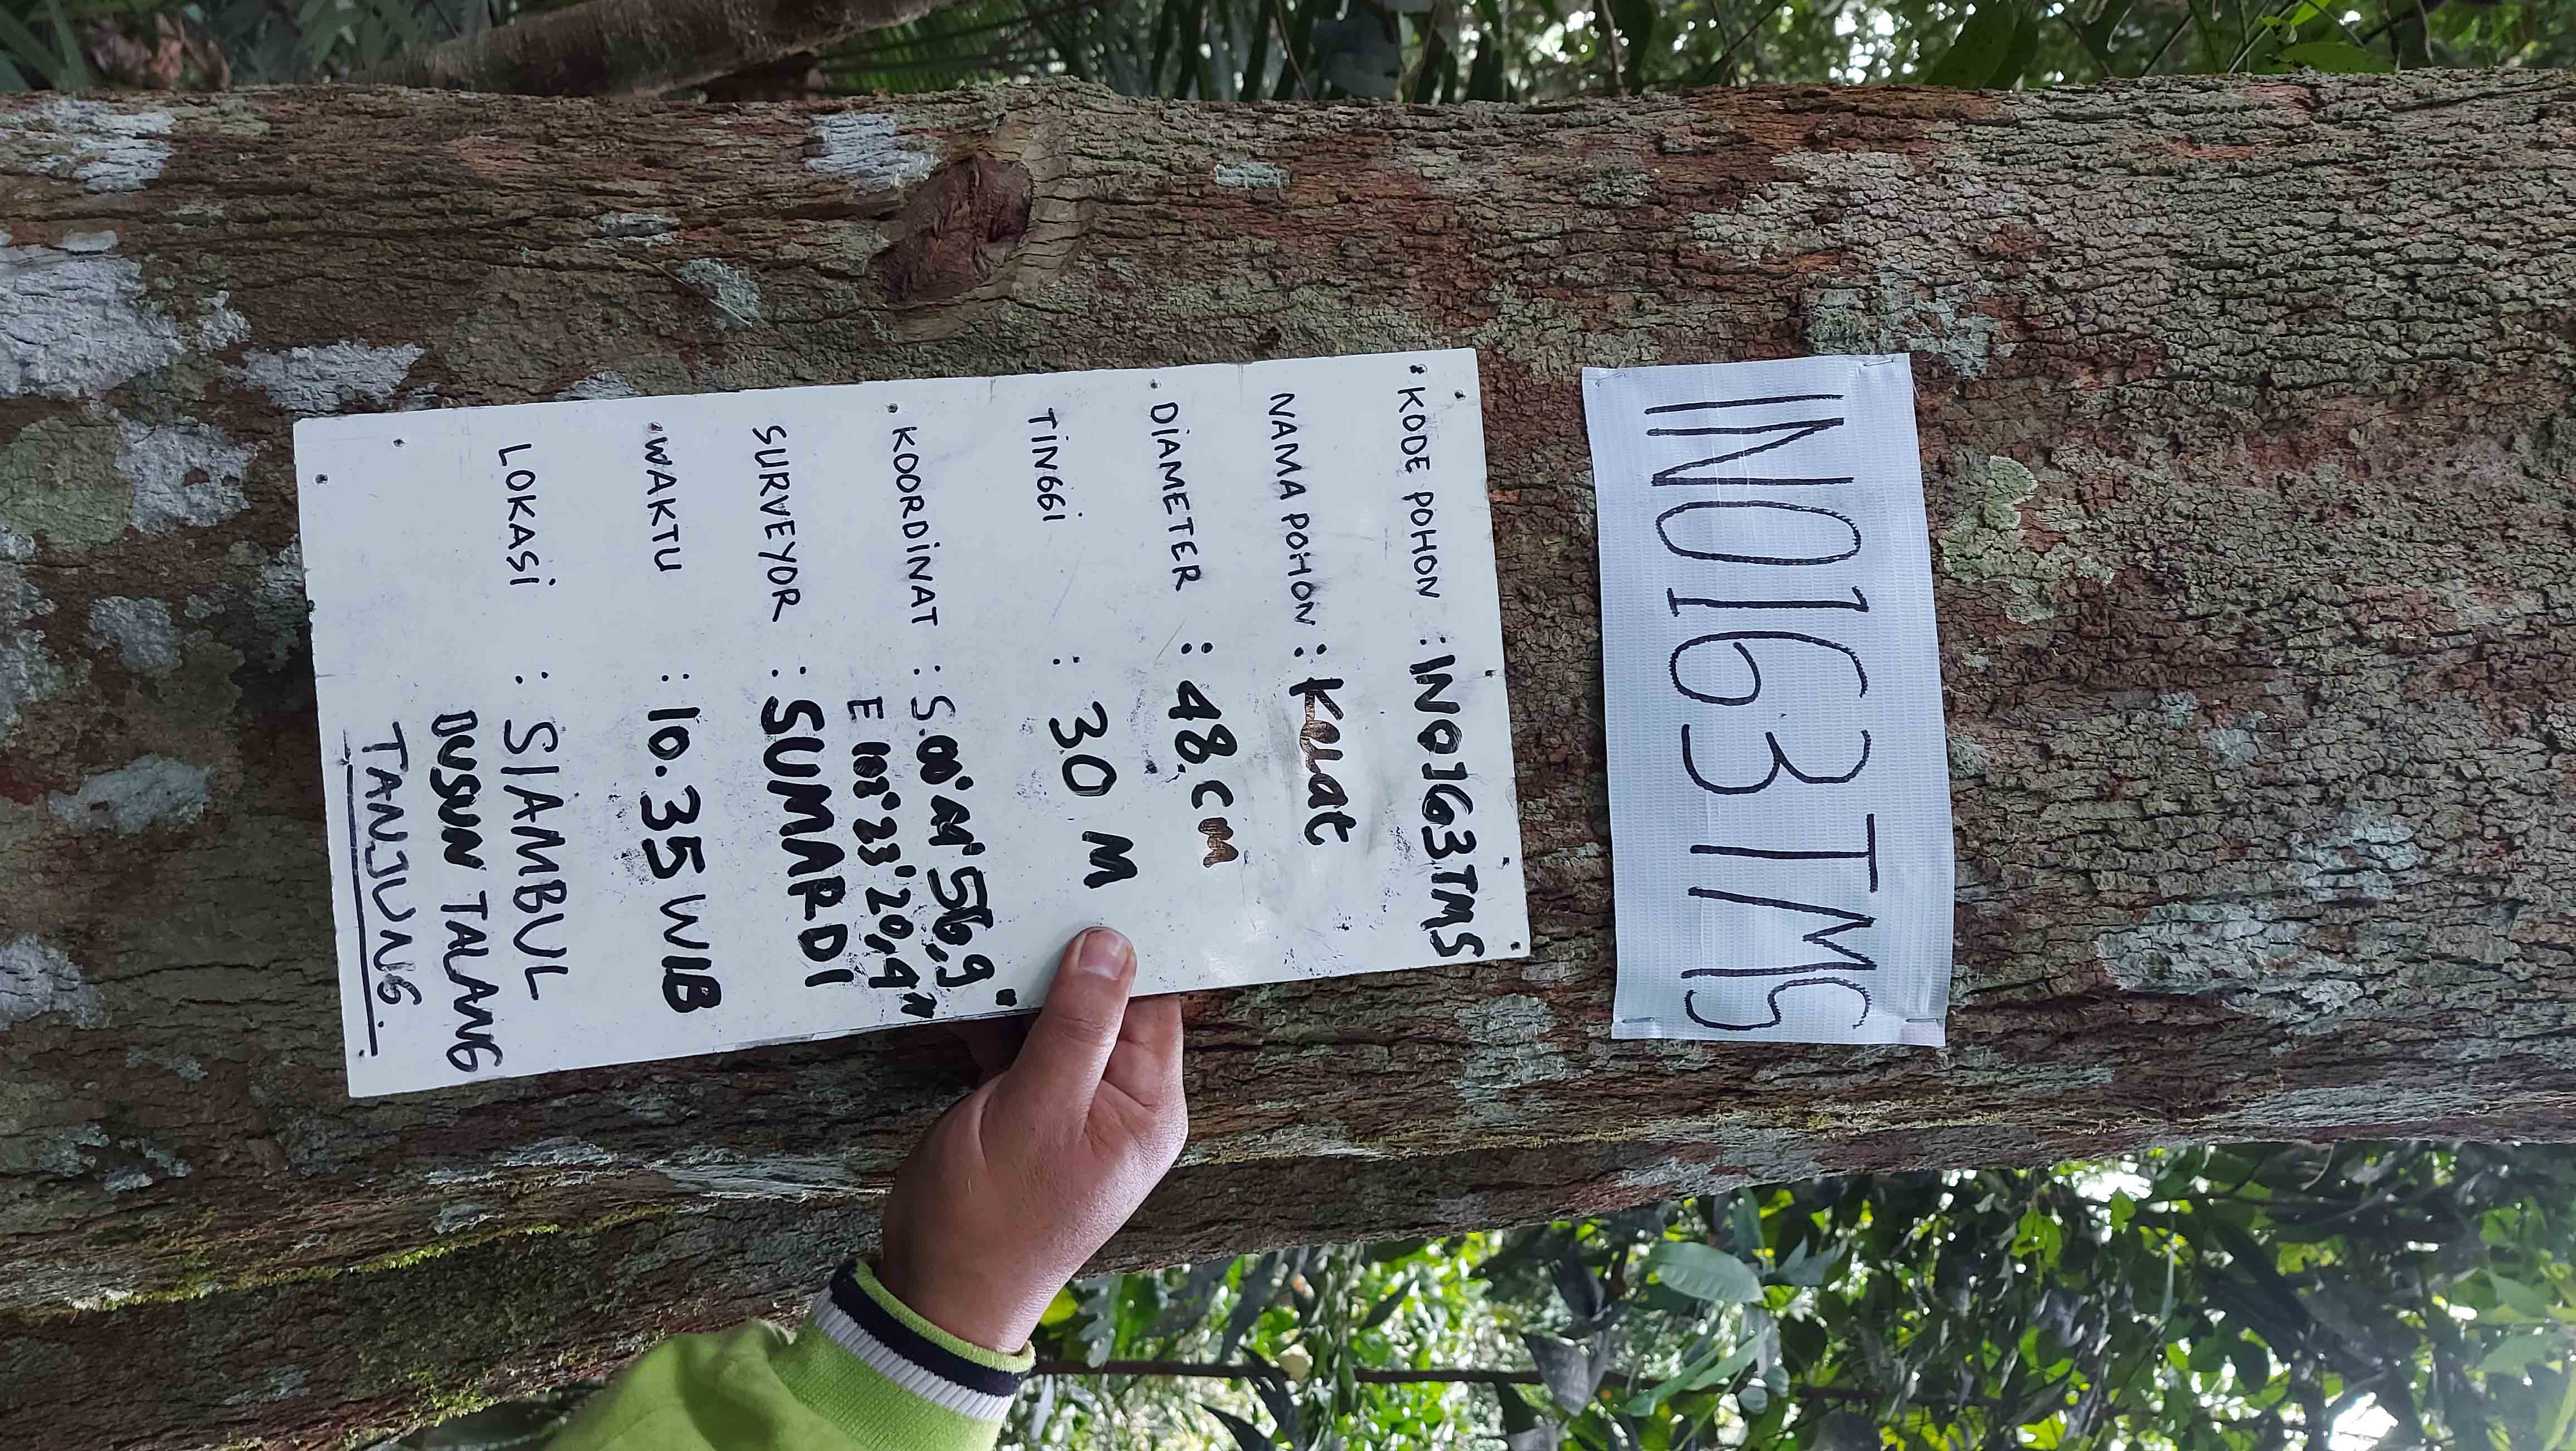 IN0163TMS
KODE POHON : IN0163TMS
NAMA POHON : Kelat
DIAMETER : 48 cm
TINGGI : 30 M
KOORDINAT : S.00°
E 102°23'20,4"
SURVEYOR : SUMARDI
WAKTU : 10.35 WIB
LOKASI : SIAMBUL
DUSUN TALANG
TANJUNG.